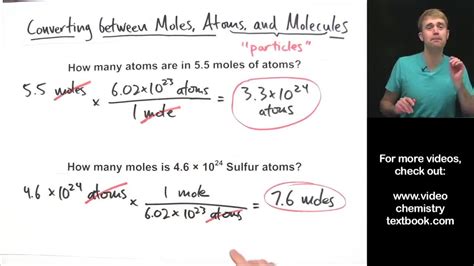 Converting between Moles, Atoms, and Molecules
"particles"
How many atoms are in 5.5 moles of atoms?
5.5 moles × 6.02×10²³ atoms / 1 mole = 3.3×10²⁴ atoms
How many moles is 4.6 × 10²⁴ Sulfur atoms?
4.6 × 10²⁴ atoms × 1 mole / 6.02×10²³ atoms = 7.6 moles
For more videos,
check out:
www.video
chemistry
textbook.com